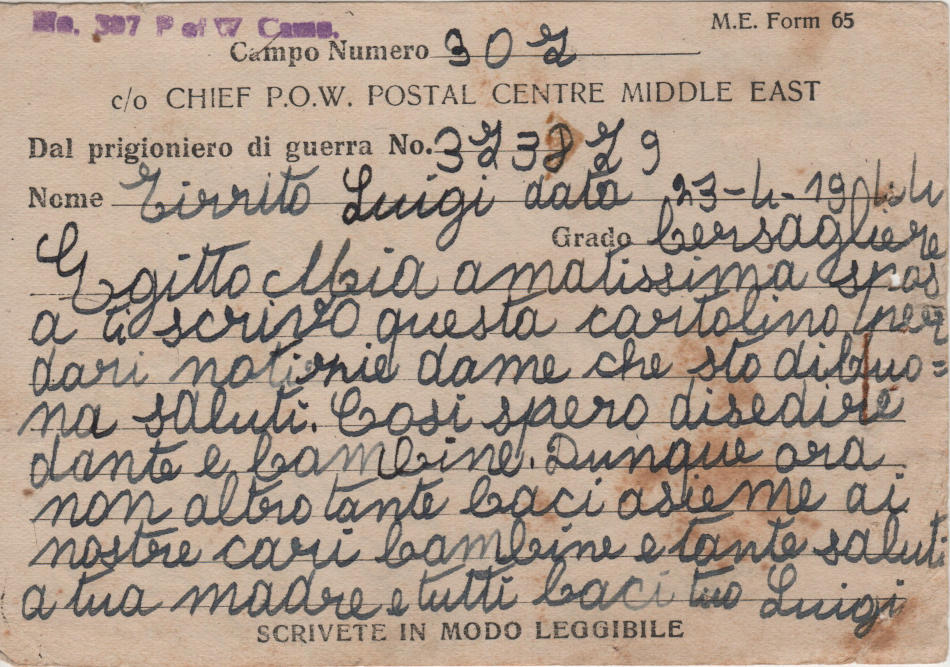 No. 307 P of W Camp.
M.E. Form 65
Campo Numero 307
c/o CHIEF P.O.W. POSTAL CENTRE MIDDLE EAST
Dal prigioniero di guerra No. 373879
Nome Tirrito Luigi data 23-4-1944
Grado bersagliere
Egitto Mia amatissima spos
a ti scrivo questa cartolino per
dari notizie dame che sto dibuo=
na saluti. Cosi spero disedire
dante e bambine. Dunque ora
non altro tante baci asieme ai
nostre cari bambine e tante saluti
a tua madre e tutti baci tuo Luigi
SCRIVETE IN MODO LEGGIBILE